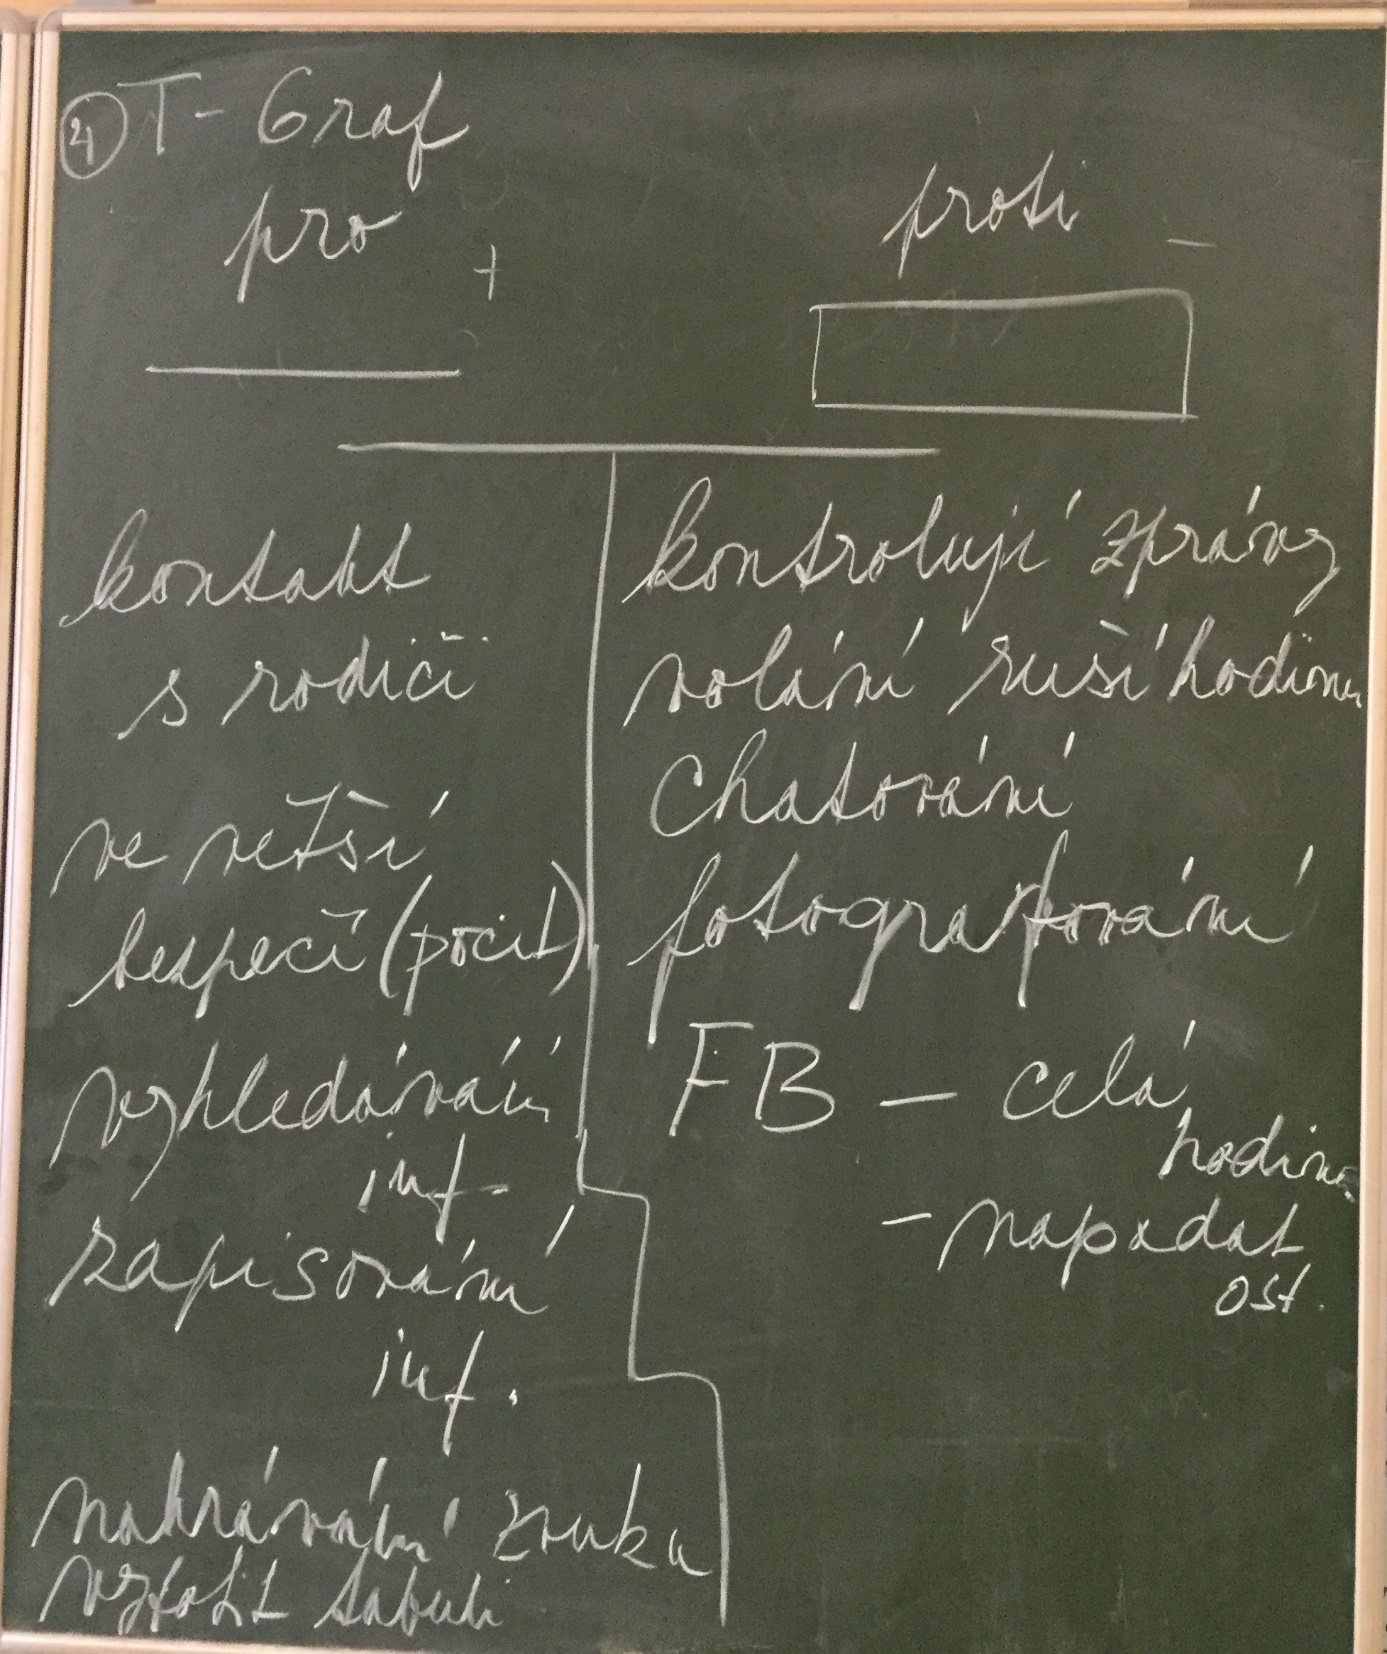 4) T-Graf
pro +
proti -
kontakt
s rodiči
ve větší
bezpečí (pocit)
vyhledávání
inf.
zapisování
inf.
nahrávání zvuku
vyfotit tabuli
kontrolují zprávy
volání ruší hodinu
chatování
fotografování
FB - celá
hodinu
- napadat
ost.